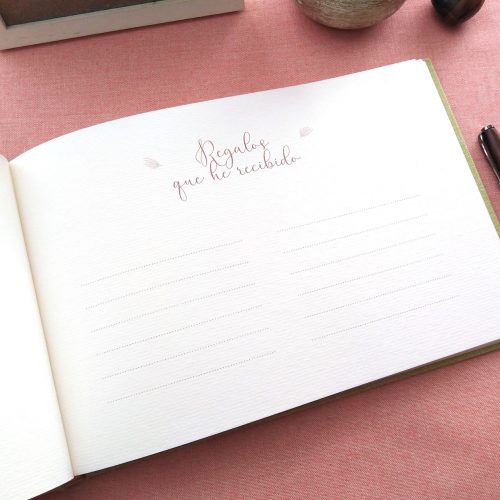 Regalos
que he recibido